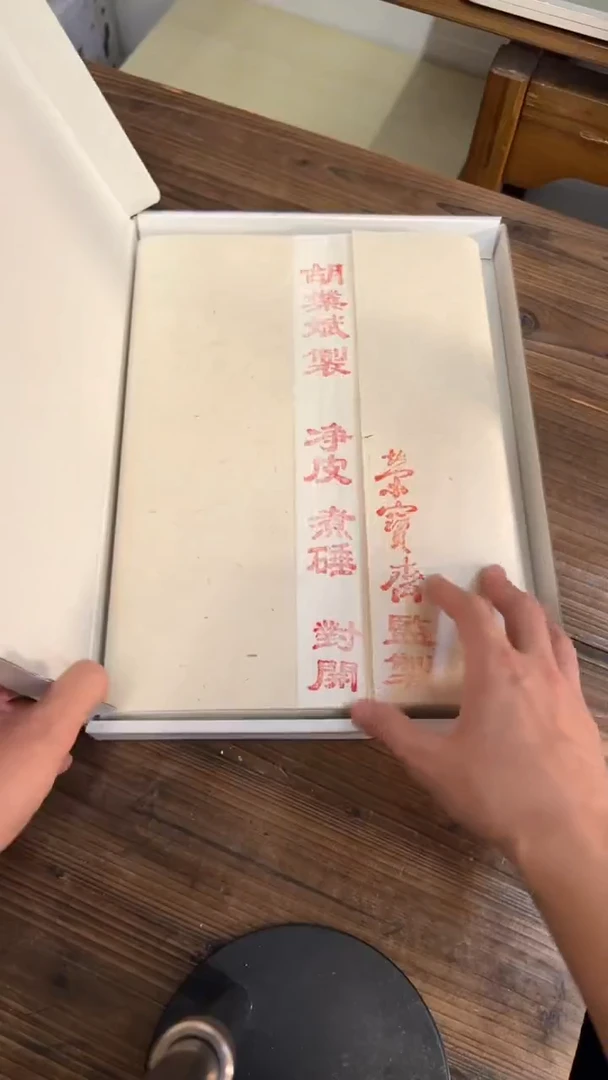 榮寶齋監製
胡業斌製 净皮 煮硾 對開